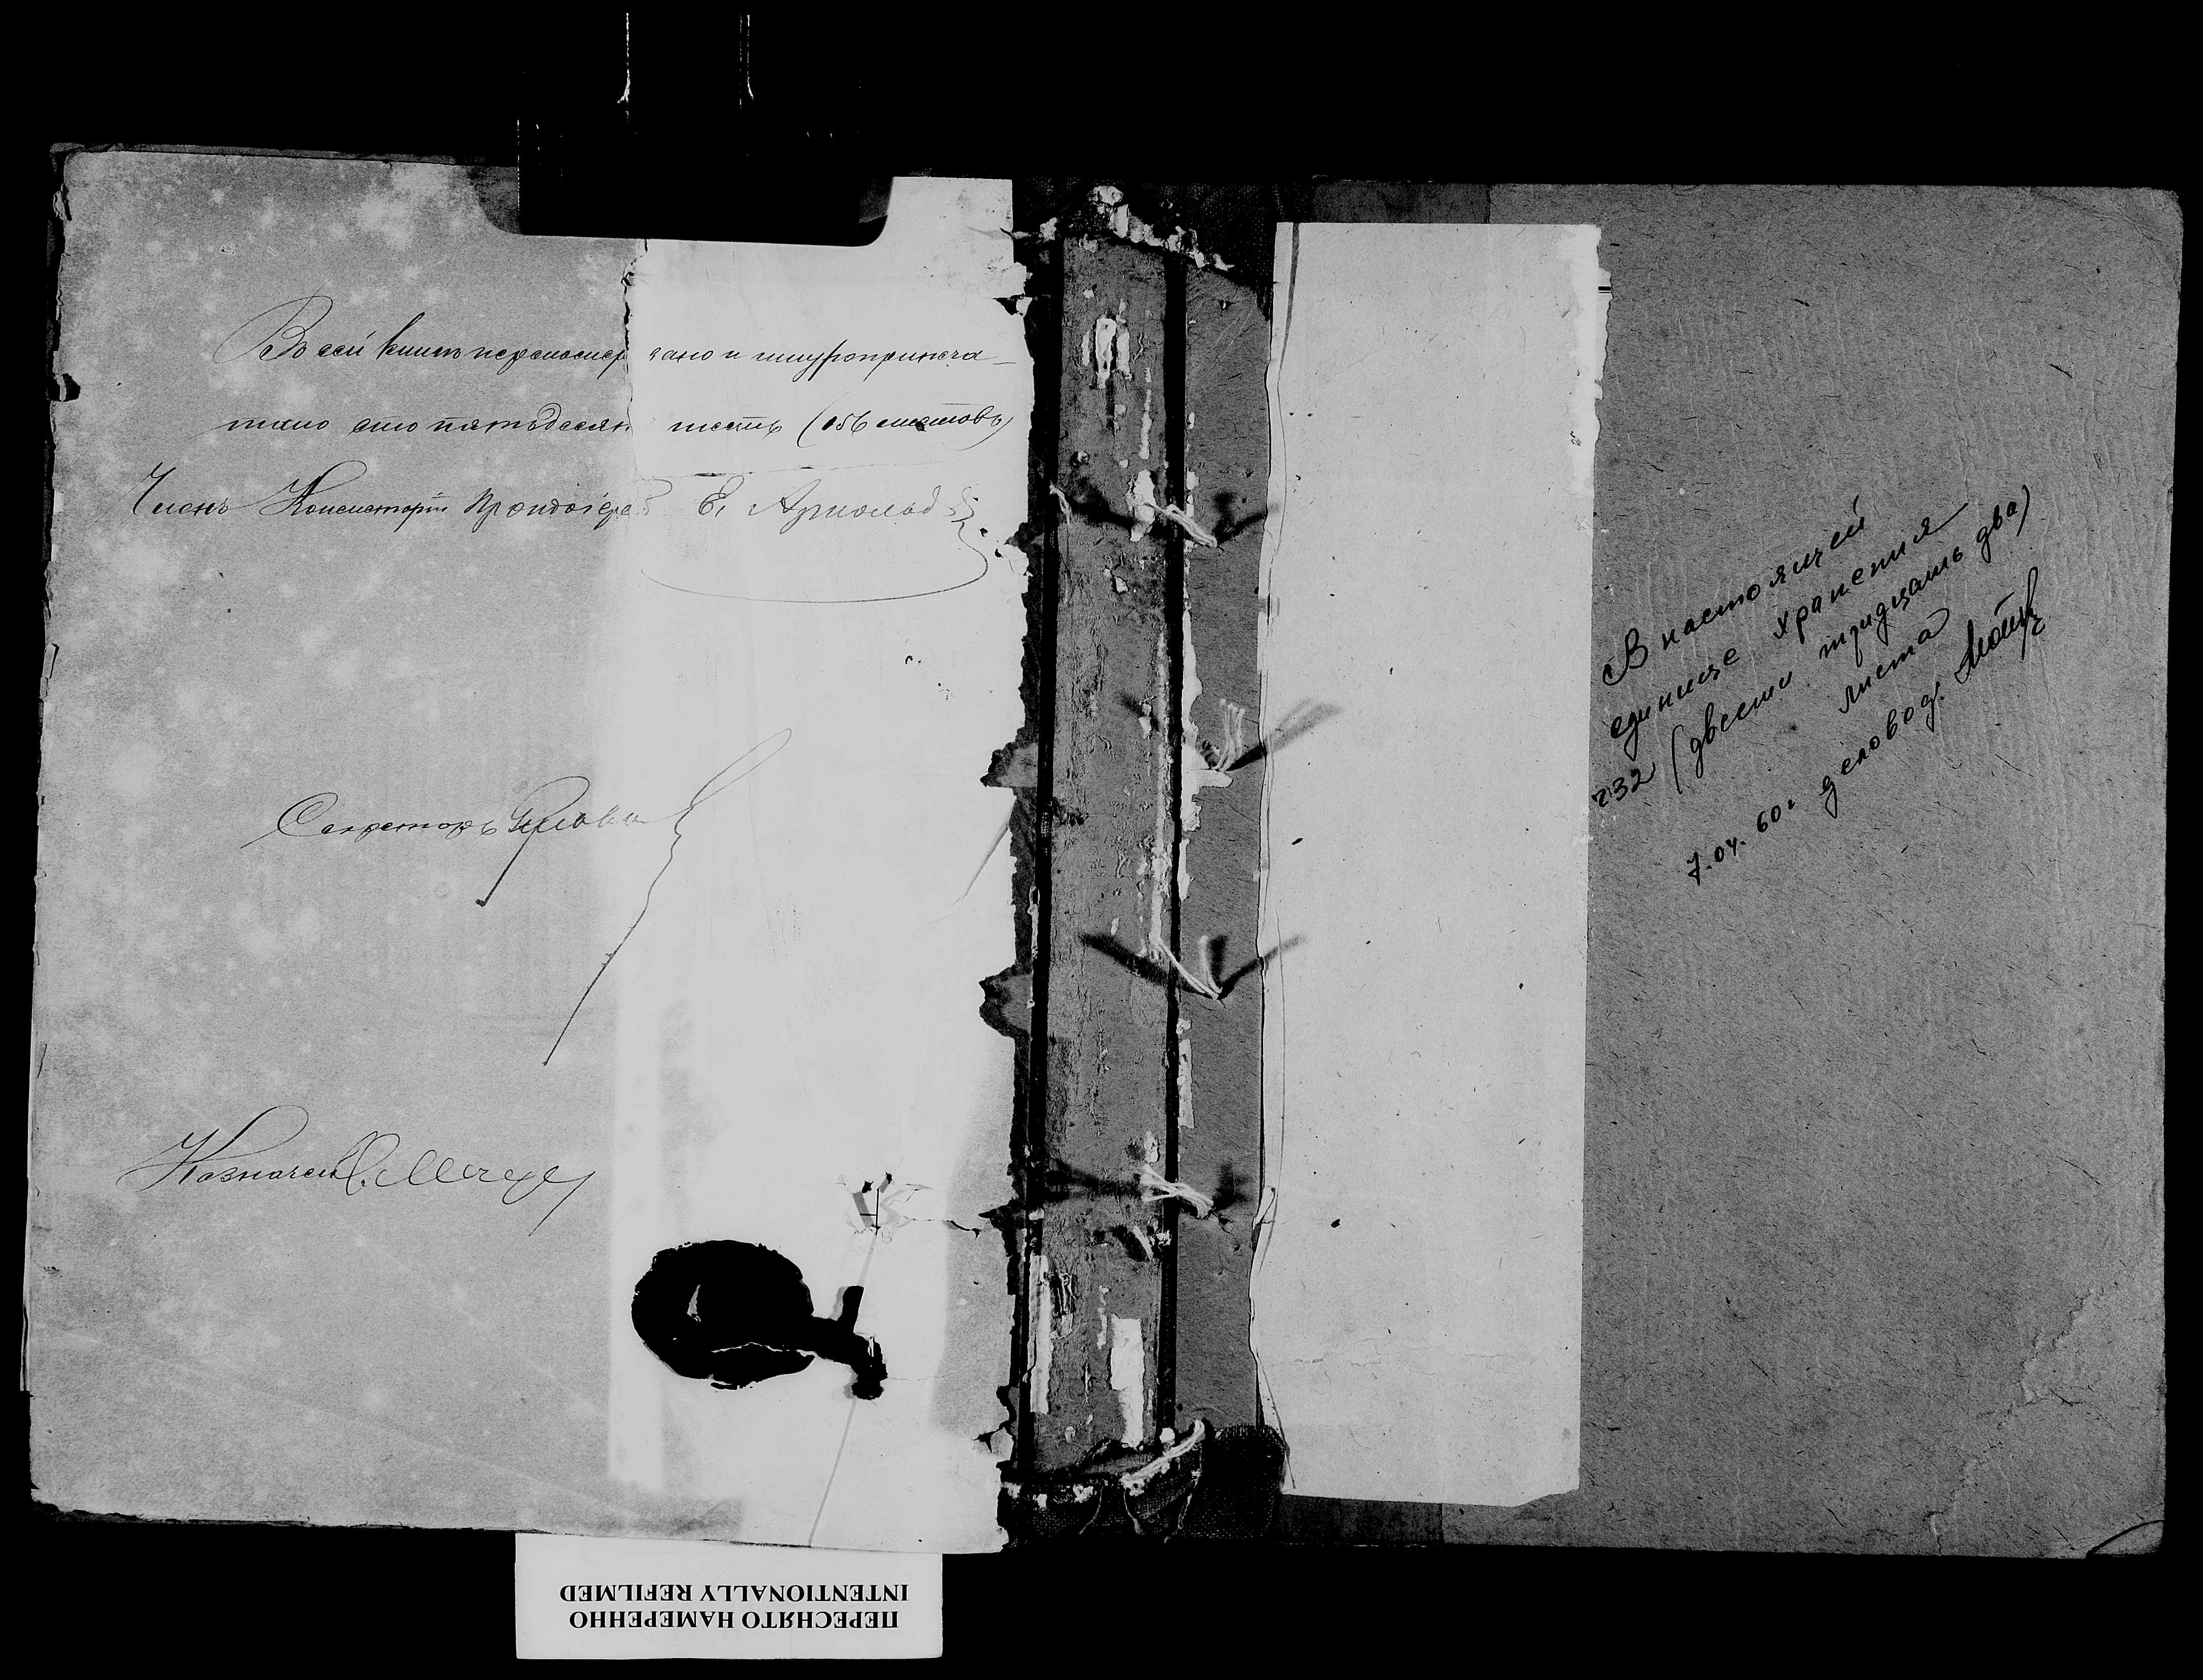 Въ сей книгѣ перенумер зано и шнуроприпеча-
тано сто пятьдесят шесть (156 листовъ)
Членъ Консисторіи Протоіерей Е. Арнольд
Секретарь
Казначей
В настоящей
единице хранения
232 (двести тридцать два)
листа
7.04.60г деловод.
ПЕРЕСНЯТО НАМЕРЕННО
INTENTIONALLY REFILMED